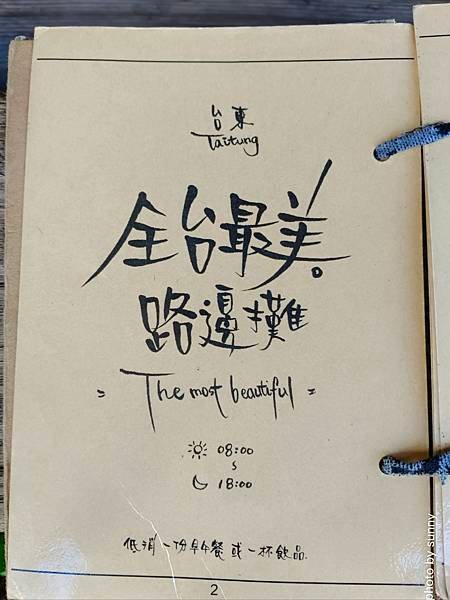 台東
Taitung
全台最美。
路邊攤
= The most beautiful =
08:00
~
18:00
低消一份早午餐或一杯飲品.
2
photo by sunny